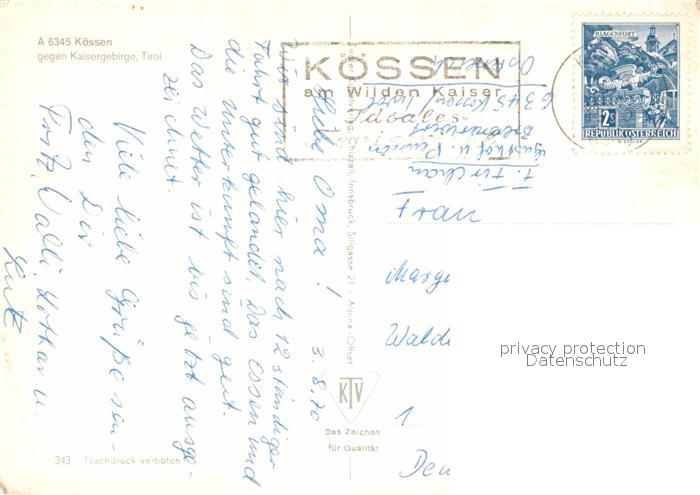 A 6345 Kössen
gegen Kaisergebirge, Tirol
KÖSSEN
am Wilden Kaiser
Ideales
KLAGENFURT
2S
REPUBLIK ÖSTERREICH
3.8.70
Liebe Oma!
Wir sind hier nach 12 ständiger
Fahrt gut gelandet. Das Essen und
die Unterkunft sind gut.
Das Wetter ist bis jetzt ausge-
zeichnet.
Viele liebe Grüße sen-
den Dir
Fritz, Walli, Lothar u.
Lutz
6345 Kössen/Tirol
Gasthof u. Pension
Frau
Marga
Walde
1
Deu
Innsbruck, Sillgasse 21 - Alpina-Offset
KTV
Das Zeichen
für Qualität
343 Nachdruck verboten
privacy protection
Datenschutz